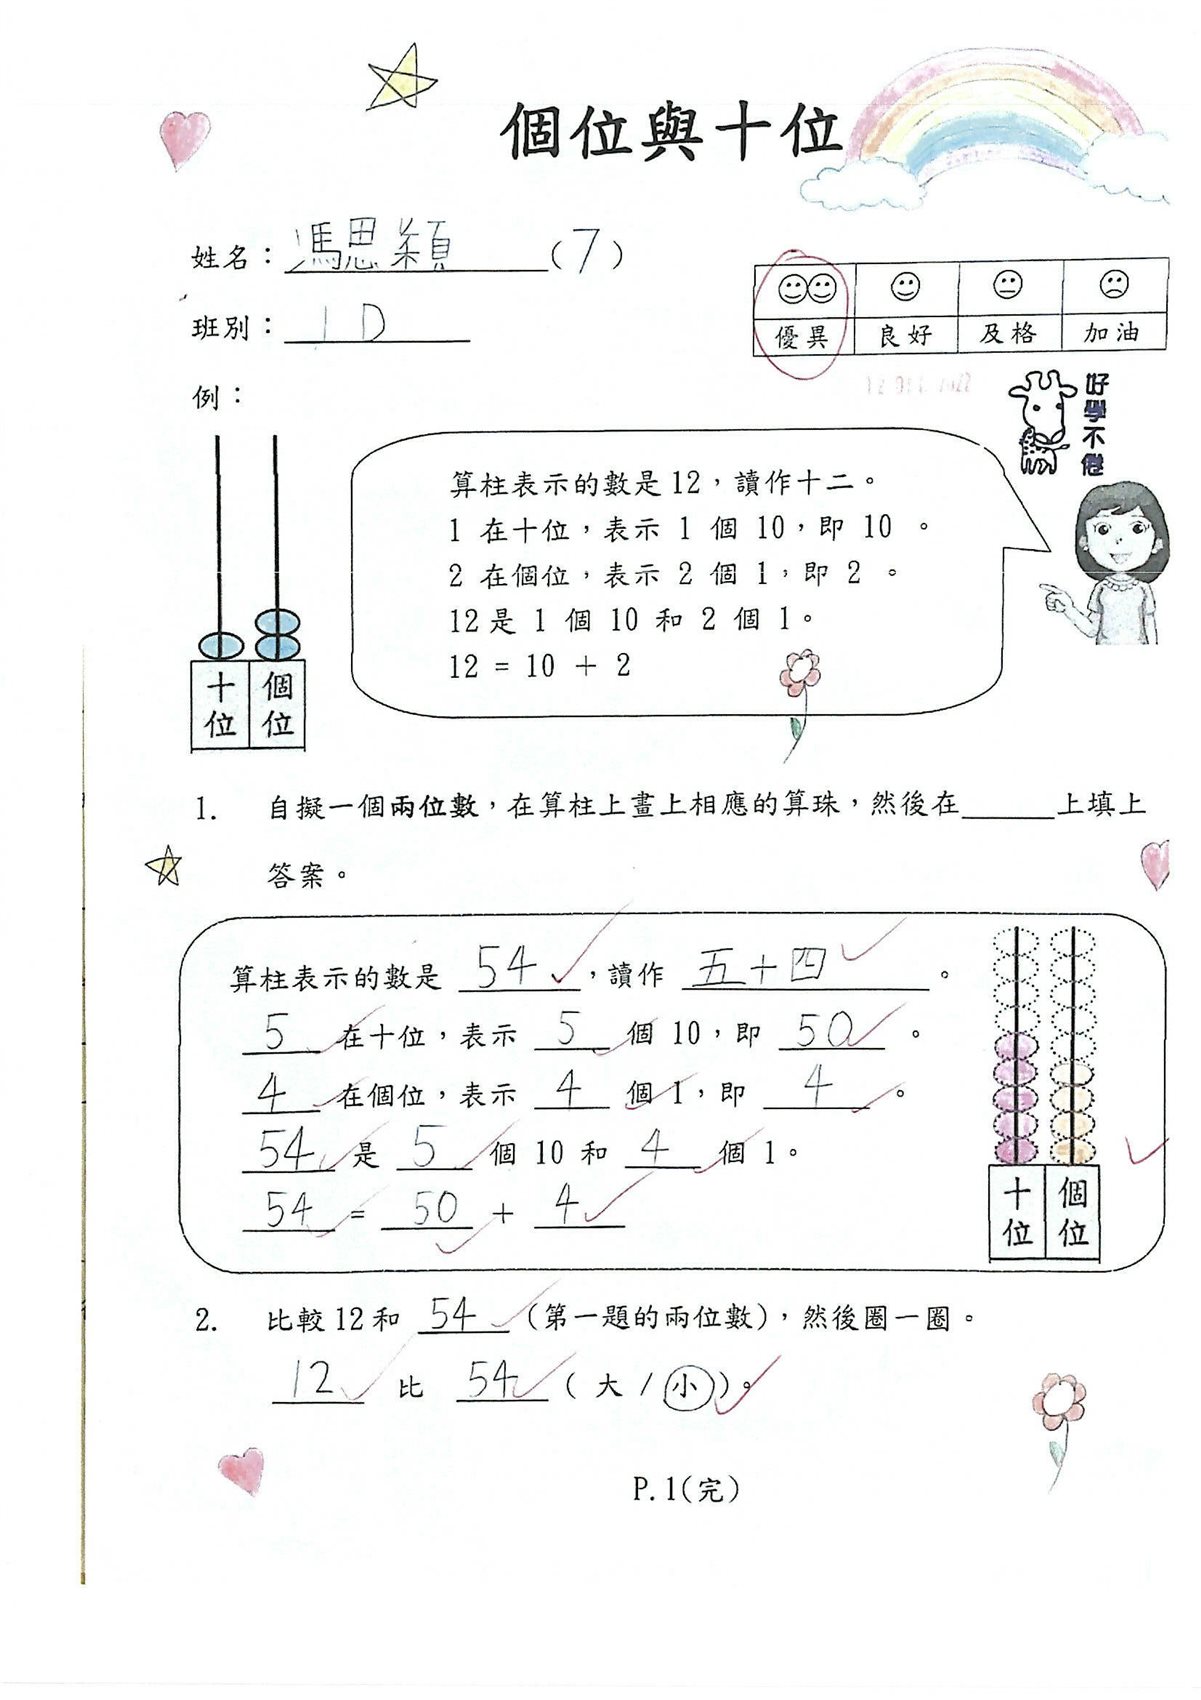 個位與十位
姓名：馮思穎(7)
班別：1D
優異 良好 及格 加油
好學不倦
例：
算柱表示的數是12，讀作十二。
1 在十位，表示 1 個 10，即 10 。
2 在個位，表示 2 個 1，即 2 。
12是 1 個 10 和 2 個 1。
12 = 10 + 2
十位 個位
1. 自擬一個兩位數，在算柱上畫上相應的算珠，然後在______上填上
答案。
算柱表示的數是 54，讀作 五十四。
5 在十位，表示 5 個 10，即 50 。
4 在個位，表示 4 個 1，即 4 。
54 是 5 個 10 和 4 個 1。
54 = 50 + 4
十位 個位
2. 比較12和 54 (第一題的兩位數)，然後圈一圈。
12 比 54 ( 大 / 小 )。
P.1(完)